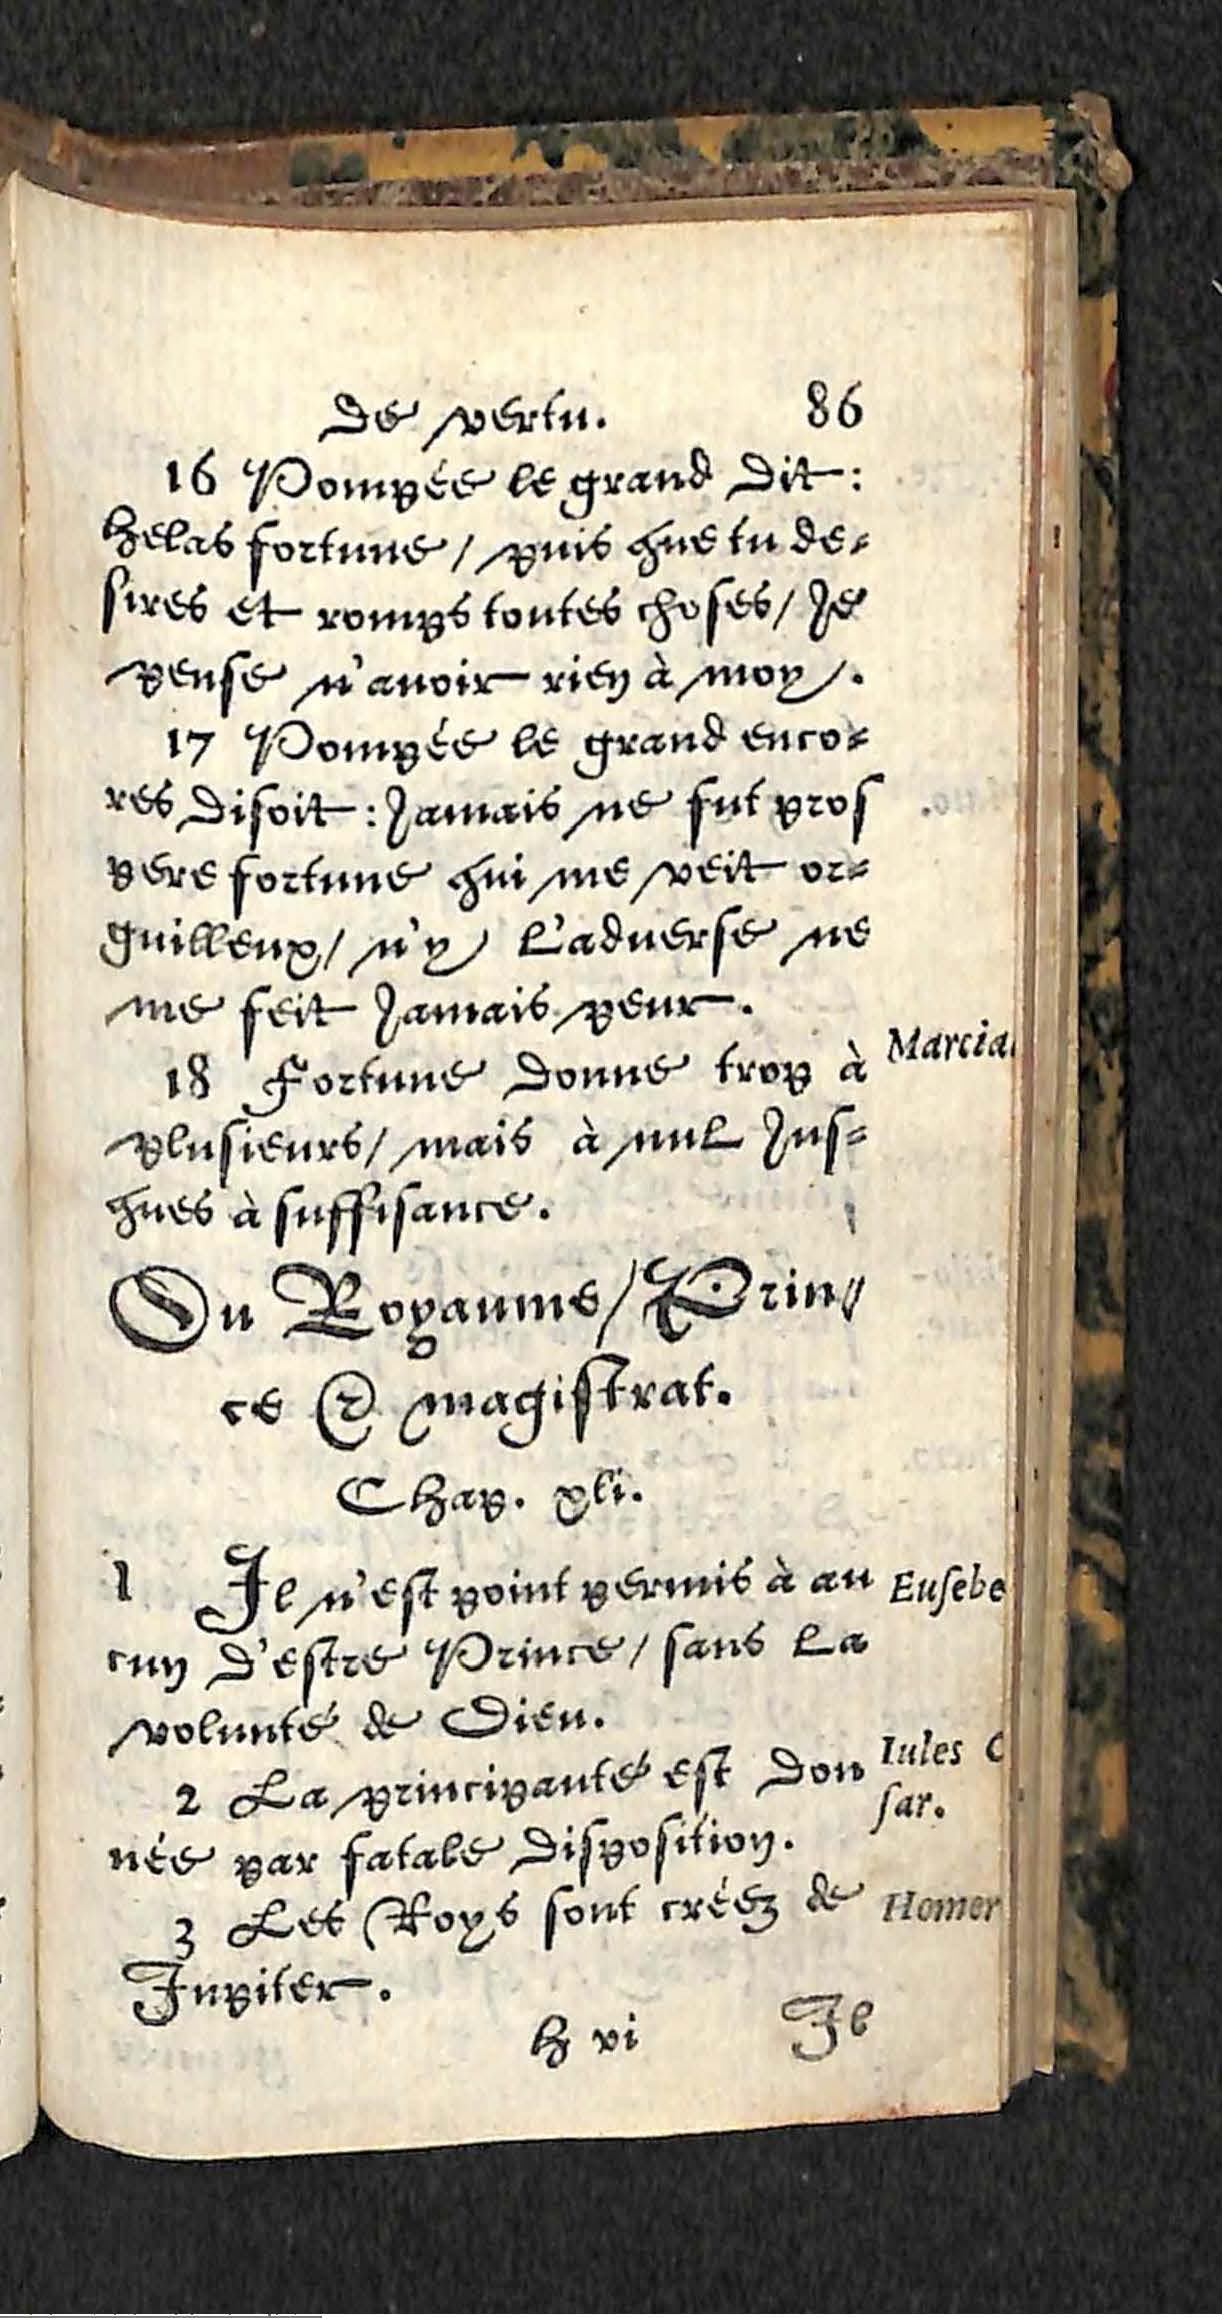 de vertu. 86
16 Pompée le grand dit:
helas fortune / puis que tu de-
sires et romps toutes choses / Je
pense n'auoir rien à moy.
17 Pompée le grand enco-
res disoit: Jamais ne fut pros
pere fortune qui me veit or-
guilleux / n'y l'aduerse ne
me feit Jamais peur.
18 Fortune donne trop à
Marcial
plusieurs / mais à nul Jus-
ques à suffisance.
Du Royaume / Prin-
ce & magistrat.
Chap. xli.
1 Il n'est point permis à au
Eusebe
cun d'estre Prince / sans la
volunté de Dieu.
2 La principauté est don
Iules C
née par fatale disposition.
sar.
3 Les Roys sont créez de
Homer
Jupiter.
h vi Il